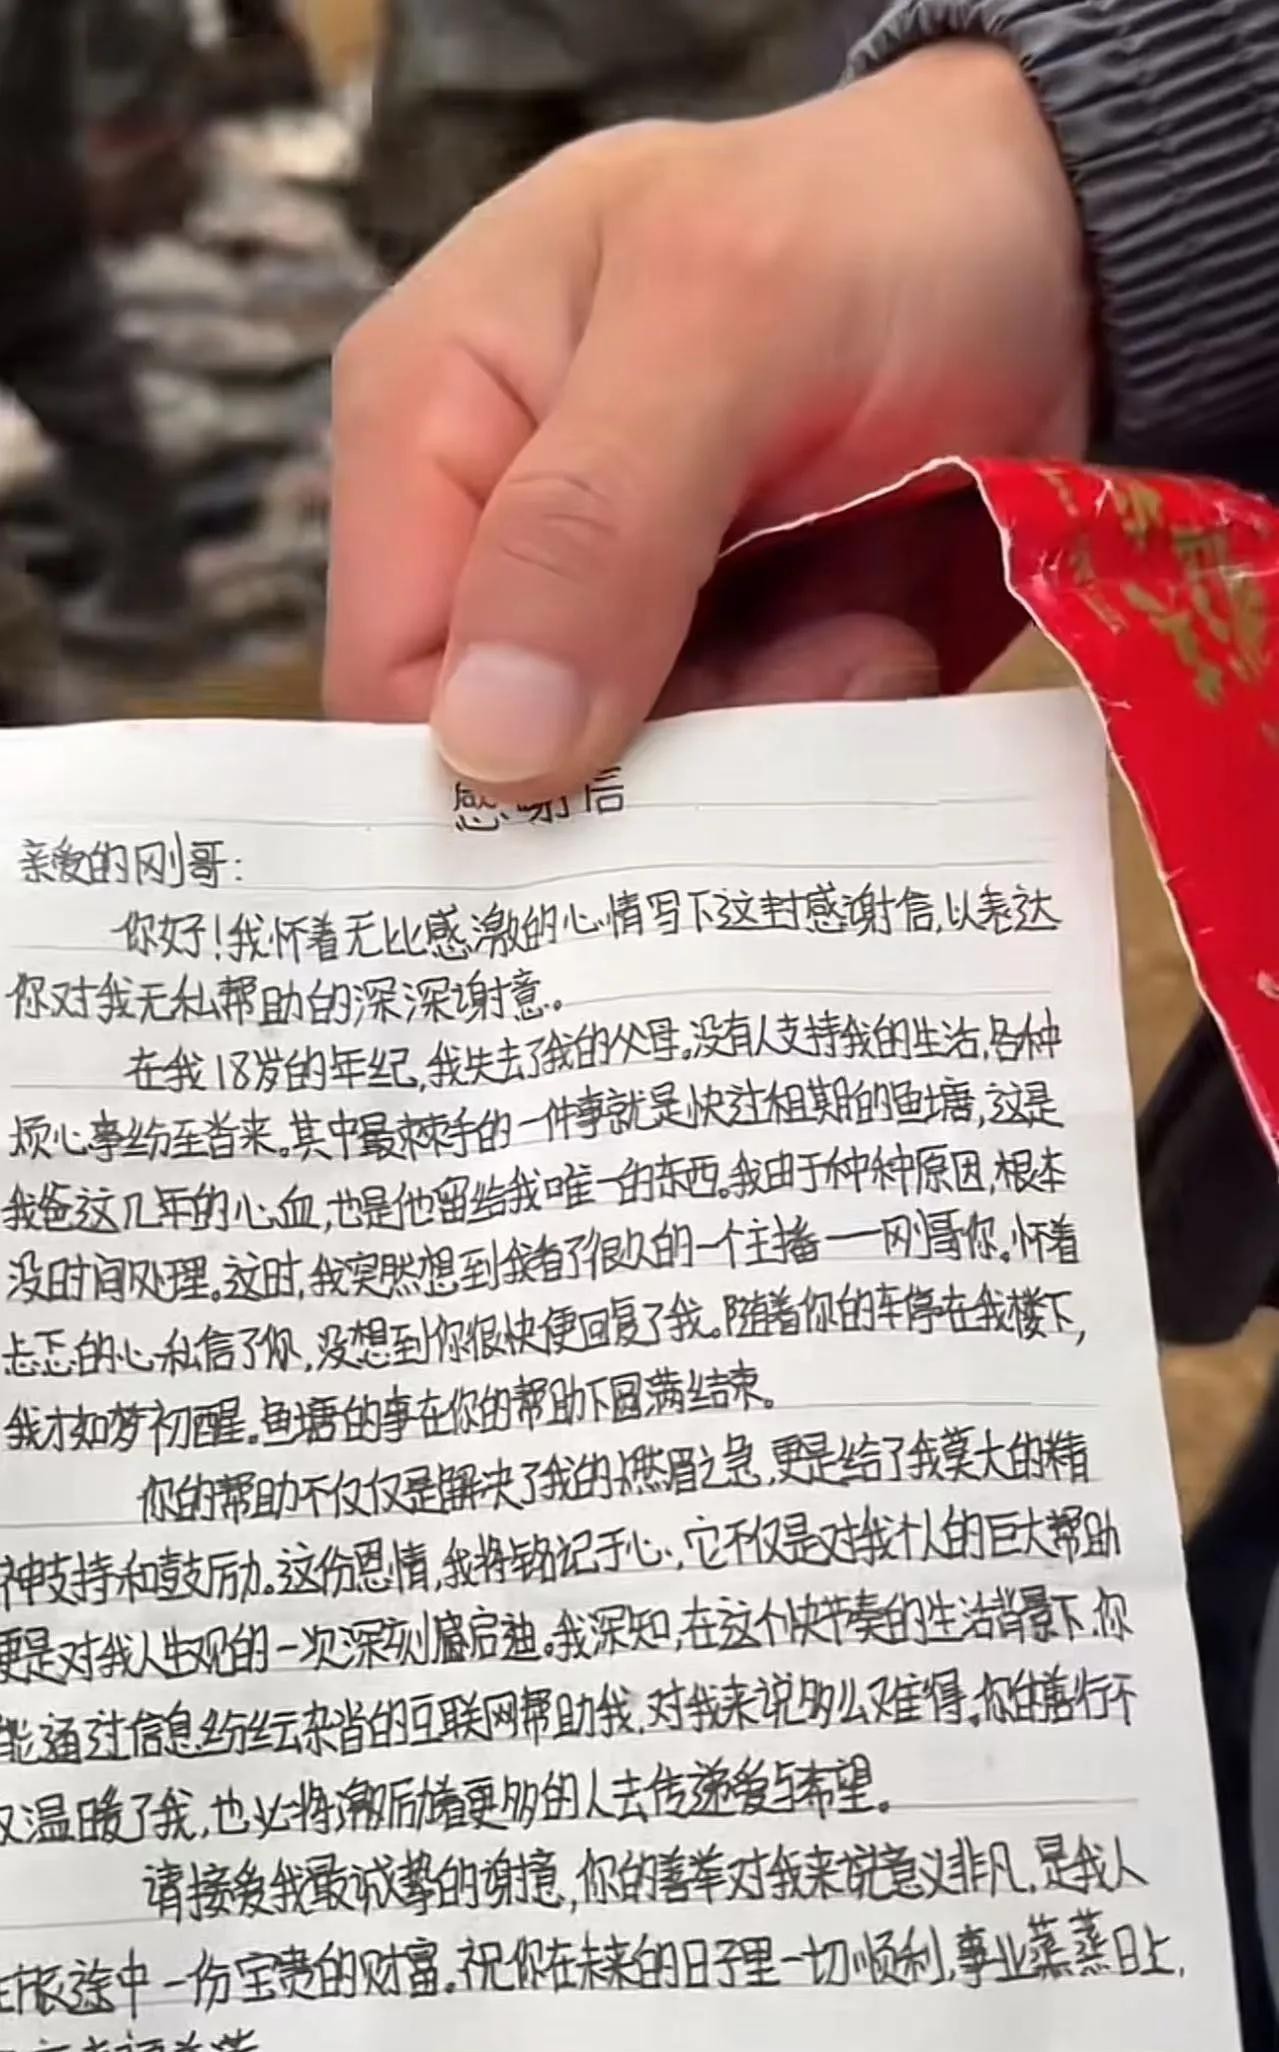 感谢信
亲爱的刚哥：
你好！我怀着无比感激的心情写下这封感谢信，以表达
你对我无私帮助的深深谢意。
在我18岁的年纪，我失去了我的父母。没有人支持我的生活，各种
烦心事纷至沓来。其中最棘手的一件事就是快过租期的鱼塘，这是
我爸这几年的心血，也是他留给我唯一的东西。我由于种种原因，根本
没时间处理。这时，我突然想到我看了很久的一个主播——刚哥你。怀着
忐忑的心私信了你，没想到你很快便回复了我。随着你的车停在我楼下，
我才如梦初醒。鱼塘的事在你的帮助下圆满结束。
你的帮助不仅仅是解决了我的燃眉之急，更是给了我莫大的精
神支持和鼓励。这份恩情，我将铭记于心，它不仅是对我个人的巨大帮助
更是对我人生观的一次深刻启迪。我深知，在这个快节奏的生活背景下，你
能通过信息纷纭杂沓的互联网帮助我，对我来说多么难得。你的善行不
仅温暖了我，也必将激励着更多的人去传递爱与希望。
请接受我最诚挚的谢意，你的善举对我来说意义非凡，是我人
生旅途中一份宝贵的财富。祝你在未来的日子里一切顺利，事业蒸蒸日上，